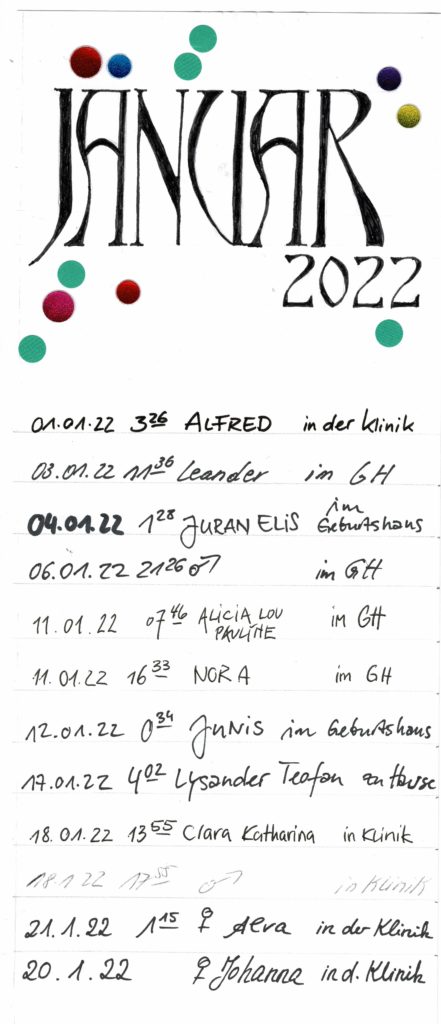 JANUAR
2022
01.01.22 3 26 ALFRED in der Klinik
03.01.22 11 36 Leander im GH
04.01.22 1 28 JURAN ELIS im Geburtshaus
06.01.22 21 26 ♂ im GH
11.01.22 07 46 ALICIA LOU PAULINE im GH
11.01.22 16 33 NORA im GH
12.01.22 0 34 JUNIS im Geburtshaus
17.01.22 4 02 Lysander Teofan zu Hause
18.01.22 13 55 Clara Katharina in Klinik
18.1.22 17 55 ♂ in Klinik
21.1.22 1 15 ♀ Alva in der Klinik
20.1.22 ♀ Johanna in d. Klinik